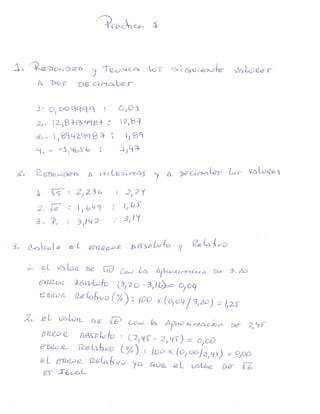 Practica 1
1. Redondea y trunca los siguiente valores
a dos decimales
1- 0,009999 : 0,01
2.- 12,87134987 : 12,87
3.- 1,89429987 : 1,89
4. - -1,4656 : -1,47
2. Redondea a milesimas y a decimales los valores
1. √5 : 2,236 : 2,24
2. √e : 1,649 : 1,65
3- π : 3,142 : 3,14
3. Calcule el error absoluto y Relativo
1. el valor de √10 con la aproximacion de 3.20
error absoluto (3,20-3,16)= 0,04
Error Relativo (%) : 100 x (0,04/3,20) = 1,25
2. el valor de √6 con la aproximación de 2,45
error absoluto : (2,45 - 2,45) = 0,00
error Relativo (%) : 100 x (0,00/2,45) = 0,00
el error relativo ya que el valor de √6
es igual